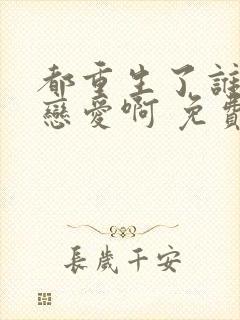 都重生了誰
戀愛啊 免費
長歲千安